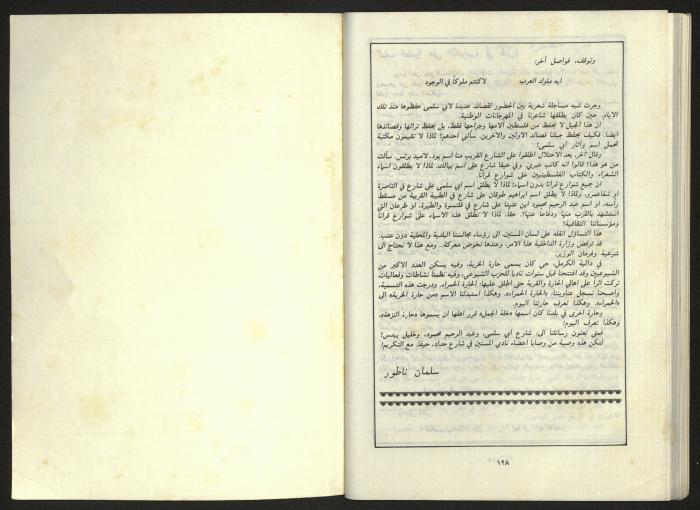 وتوقف، فواصل آخر:
ايه ملوك العرب لا كنتم ملوكاً في الوجود
وجرت شبه مساجلة شعرية بين الحضور لقصائد عديدة لابي سلمى حفظوها منذ تلك
الايام، حين كان يطلقها شاعرنا في المهرجانات الوطنية.
ان هذا الجيل لا يحفظ من فلسطين آلامها وجراحها فقط، بل يحفظ تراثها وقصائدها
ايضا. فكيف يحفظ جيلنا قصائد الاولين والآخرين. سألني احدهم: لماذا لا تقيمون مكتبة
تحمل اسم وآثار ابي سلمى!
وقال آخر، بعد الاحتلال اطلقوا على الشارع القريب منا اسم يود. لاميد برتس. سألت
من هو هذا؟ قالوا انه كاتب عبري. وفي حيفا شارع على اسم بيالك. لماذا لا يطلقون اسماء
الشعراء والكتاب الفلسطينيين على شوارع قرانا.
ان جميع شوارع قرانا بدون اسماء! لماذا لا يطلق اسم ابي سلمى على شارع في الناصرة
او شفاعمرو، ولماذا لا يطلق اسم ابراهيم طوقان على شارع في الطيبة القريبة من مسقط
رأسه. او اسم عبد الرحيم محمود ابن عنبتا على شارع في قلنسوة والطيرة. او طرعان التي
استشهد بالقرب منها ودفاعا عنها؟ حقا، لماذا لا تطلق هذه الاسماء على شوارع قرانا
ومؤسساتنا الثقافية؟
هذا التساؤل انقله على لسان المسنين، الى رؤساء مجالسنا البلدية والمحلية دون عتب.
قد ترفض وزارة الداخلية هذا الامر، وعندها نخوض معركة.. ومع هذا لا نحتاج الى
شرعية وفرمان الوزير.
في دالية الكرمل، حي كان يسمى حارة الخربة، وفيه يسكن العدد الاكبر من
الشيوعيين وقد افتتحنا قبل سنوات ناديا للحزب الشيوعي، وفيه نظمنا نشاطات وفعاليات
تركت اثرا على اهالي الحارة والقرية حتى اطلق عليها: الحارة الحمراء. ودرجت هذه التسمية،
وأصبحنا نسجل عناويننا: «الحارة الحمراء». وهكذا استبدلنا الاسم «من حارة الخربة» الى
«الحمراء». وهكذا تعرف حارتنا اليوم.
وحارة اخرى في بلدنا كان اسمها «خلة الجمل» قرر اهلها ان يسموها «حارة النزهة»،
وهكذا تعرف اليوم!
فمتى تعنون رسائلنا الى: شارع ابي سلمى، وعبد الرحيم محمود، وخليل بيدس؟
لتكن هذه وصية من وصايا اعضاء نادي المسنين في شارع حداد، حيفا. مع التكريم!
سلمان ناطور
١٢٨